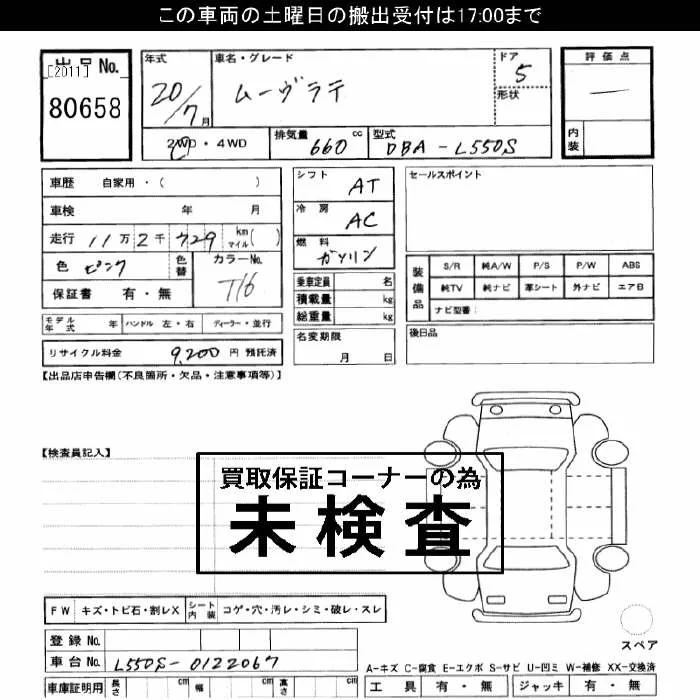 この車両の土曜日の搬出受付は17:00まで
出品No.
[2011]
80658
年式
20/7月
車名・グレード
ムーヴラテ
ドア
5
形状
評価点
―
内装
2WD・4WD
排気量 660 cc
型式 DBA-L550S
車歴 自家用・( )
車検 年 月
走行 11万2千729 km マイル( )
色 ピンク 色替 カラーNo. T16
保証書 有・無
モデル年式 年 ハンドル 左・右 ディーラー・並行
リサイクル料金 9,200 円 預託済
シフト AT
冷房 AC
燃料 ガソリン
乗車定員 名
積載量 kg
総重量 kg
名変期限
月 日
セールスポイント
装備品
S/R 純A/W P/S P/W ABS
純TV 純ナビ 革シート 外ナビ エアB
ナビ型番:
後日品
【出品店申告欄(不良箇所・欠品・注意事項等)】
【検査員記入】
買取保証コーナーの為
未検査
FW キズ・トビ石・割レX シート内装 コゲ・穴・汚レ・シミ・破レ・スレ
登録No.
車台No. L550S-0122067
車庫証明用 長さ cm 幅 cm 高さ cm
スペア
A-キズ C-腐食 E-エクボ S-サビ U-凹ミ W-補修 XX-交換済
工具 有・無 ジャッキ 有・無